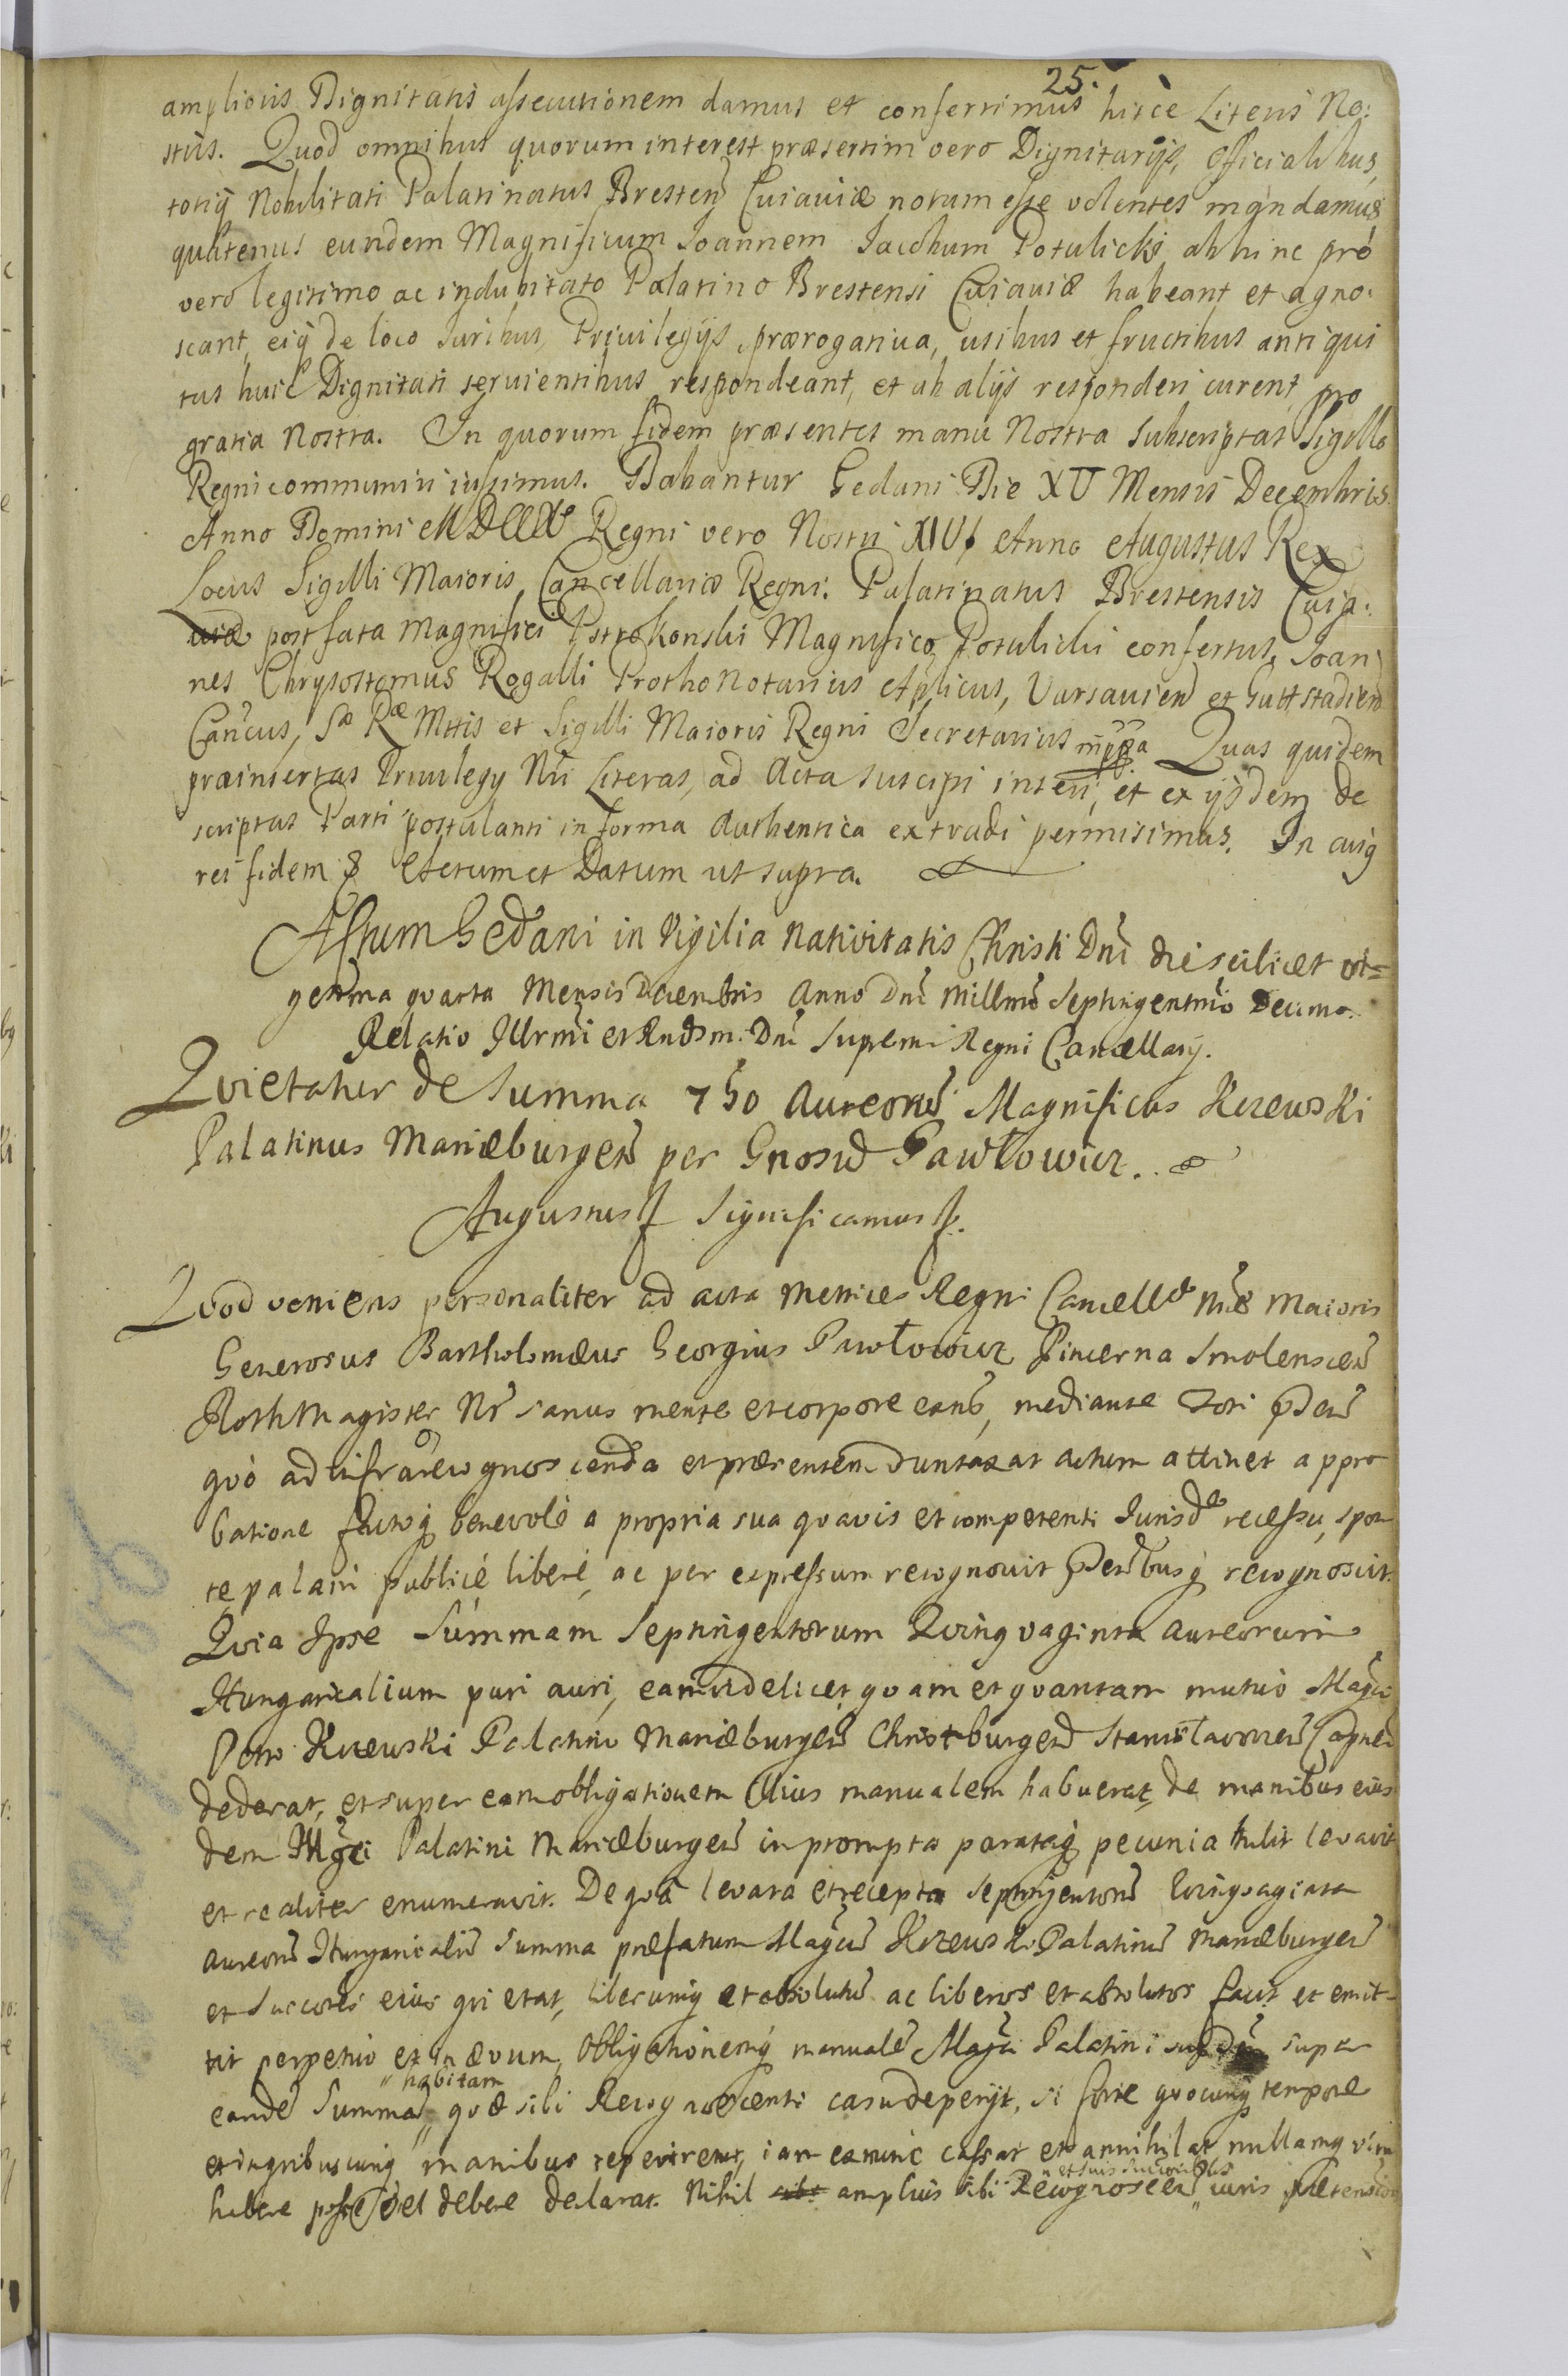 25.
amplioris Dignitatis assecutionem damus et conferrimus hisce Literis No:
stris. Quod omnibus quorum interest præsertim vero Dignitarijs, Officialibus,
totiq Nobilitati Palatinatus Bresten Cuiaviæ notum esse volentes mandamus
quatenus eundem Magnificum Joannem Jacobum Potulicki abhinc pro
vero legitimo ac indubitato Palatino Brestensi Cuiaviæ habeant et agno:
scant, eiq de loco Juribus, Privilegijs, prærogativa, usibus et fructibus antiqui
tus huic Dignitati servientibus respondeant, et ab alijs responderi curent, pro
gratia Nostra. In quorum fidem præsentes manu Nostra subscriptas Sigillo
Regni communiri iussimus. Dabantur Gedani Die XV Mensis Decembris
Anno Domini MDCCX Regni vero Nostri XIV Anno Augustus Rex
Locus Sigilli Maioris Cancellariæ Regni. Palatinatus Brestensis Cuja:
viæ post fata Magnifici Pstrokonski Magnifico Potulicki confertur, Joan
nes Chrysostomus Rogalli ProthoNotarius Aplicus, Varsavien et Guttstadien
Cancus, Sæ Ræ Mttis et Sigilli Maioris Regni Secretarius mppa Quas quidem
præinsertas Privilegy Nri Literas, ad Acta suscipi inseri, et ex ijsdem de
scriptas Parti postulanti in forma Authentica extradi permisimus. In cuiq
rei fidem & Actum et Datum ut supra.
Actum Gedani in Vigilia Nativitatis Christi Dni die scilicet vi=
gesima quarta Mensis Decembris Anno Dni Millmo Septingentmo Decimo.
Relatio Illrmi et Rndsm. Dni Supremi Regni Cancellarij.
Quietatur de Summa 750 Aureorum Magnificus Kczewski
Palatinus Mariæburgen per Gnosum Pawłowicz.
Augustus Significamus.
Quod veniens personaliter ad acta Metrices Regni Cancellæ Nræ Maioris
Generosus Bartholomæus Georgius Pawłowicz Pincerna Smolenscen
Rothmagister Nr sanus mente et corpore exns, mediante Tori Psen
quò ad infra recognoscenda et præsentem duntaxat actum attinet appro
batione factoq benevolè a propria sua quavis et competenti Jurisde recessu, spon
te palam publicè liberè, ac per expressum recognovit Psenbusq recognoscit.
Quia Ipse Summam Septingentorum Quinquaginta aureorum
Hungaricalium puri auri, eam videlicet quam et quantam mutuò Magco
Petro Kczewski Palatino Mariæburgen Christburgen Stanisławovien Capneo
dederat, et super eam obligationem Illius manualem habuerat, de manibus eius
dem Mgci Palatini Mariæburgen in prompta parataq pecunia tulit levavit
et realiter enumeravit. De quâ levata et recepta Septingentorum Quinquaginta
aureorum Hungaricaliu Summa præfatum Magcum Kczewski Palatinu Mariæburgen
et Succores eius quietat, liberumq et absolutu ac liberos et absolutos facit et emit=
tit perpetuò et in ævum, Obligationemq manuale Magci Palatini super
eande Summa habitam quæ sibi Recognoscenti casu deperijt, si forte quocunq tempore
et in quibuscunq manibus reperiretur, iam ex nunc cassat et annihilat nullamq vim
habere posse vel debere declarat. Nihil amplius sibi Recognoscen et suis Succoribus iuris prætension